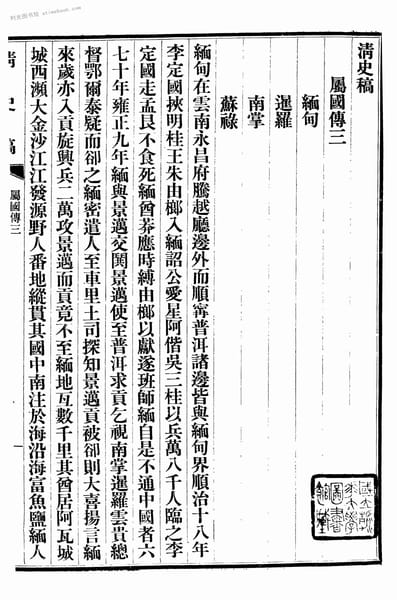 清史稿
屬國傳三
緬甸
暹羅
南掌
蘇祿
緬甸在雲南永昌府騰越廳邊外而順甯普洱諸邊皆與緬甸界順治十八年
李定國挾明桂王朱由榔入緬詔公愛星阿偕吳三桂以兵萬八千人臨之李
定國走孟艮不食死緬酋莽應時縛由榔以獻遂班師緬自是不通中國者六
七十年雍正九年緬與景邁交鬨景邁使至普洱求貢乞視南掌暹羅雲貴總
督鄂爾泰疑而卻之緬密遣人至車里土司探知景邁貢被卻則大喜揚言緬
來歲亦入貢旋興兵二萬攻景邁而貢竟不至緬地亙數千里其酋居阿瓦城
城西瀕大金沙江江發源野人番地縱貫其國中南注於海沿海富魚鹽緬人
清史稿
屬國傳三
一